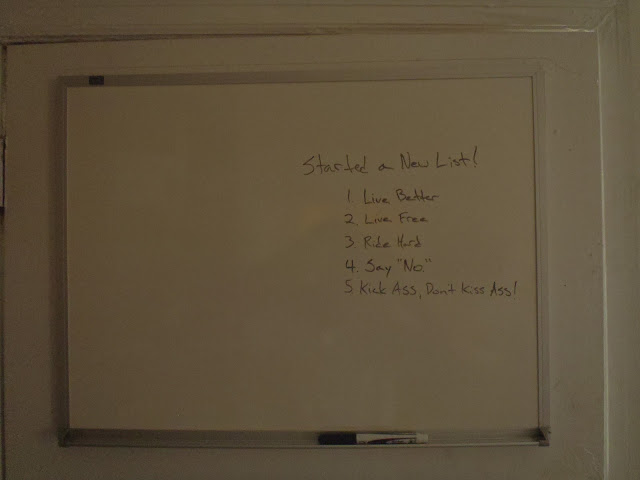 Started a New List!
1. Live Better
2. Live Free
3. Ride Hard
4. Say "No."
5. Kick Ass, Don't Kiss Ass!